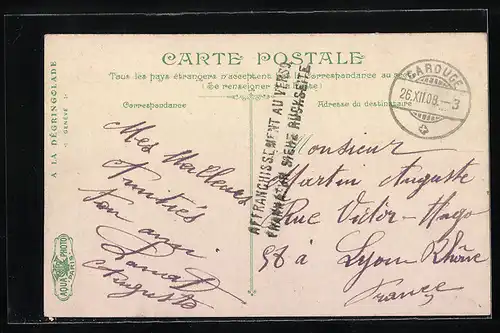 CARTE POSTALE
Tous les pays étrangers n'acceptent pas la correspondance au recto
(Se renseigner à la Poste)
Correspondance
Adresse du destinataire
A LA DÉGRINGOLADE
GENÈVE
AQUA PHOTO
PARIS
CAROUGE
26.XII.08. - 3
AFFRANCHISSEMENT AU VERSO
FRANKATUR SIEHE RÜCKSEITE
Mes Meilleures
Amitiés
ton ami
Auguste
Monsieur
Martin Auguste
Rue Victor-Hugo
58 à Lyon Rhône
France